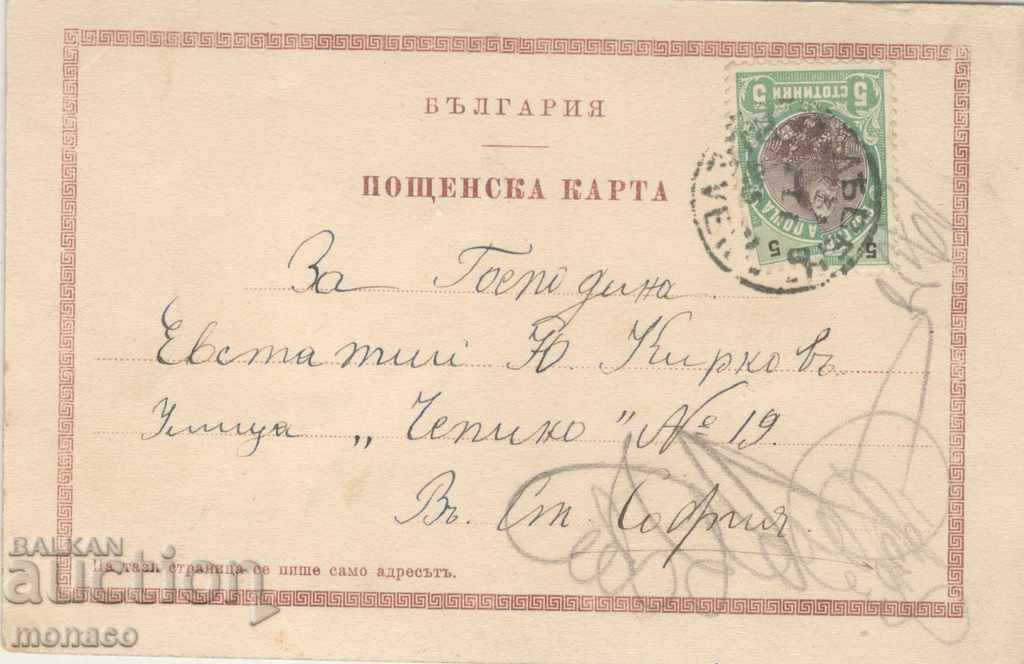 БЪЛГАРИЯ
ПОЩЕНСКА КАРТА
5 СТОТИНКИ 5
5 5
За Господина
Евстатий Н. Кирковъ
Улица „Чепино“ № 19.
Въ Ст. София.
На тази страница се пише само адресътъ.
BALKAN
auction
monaco